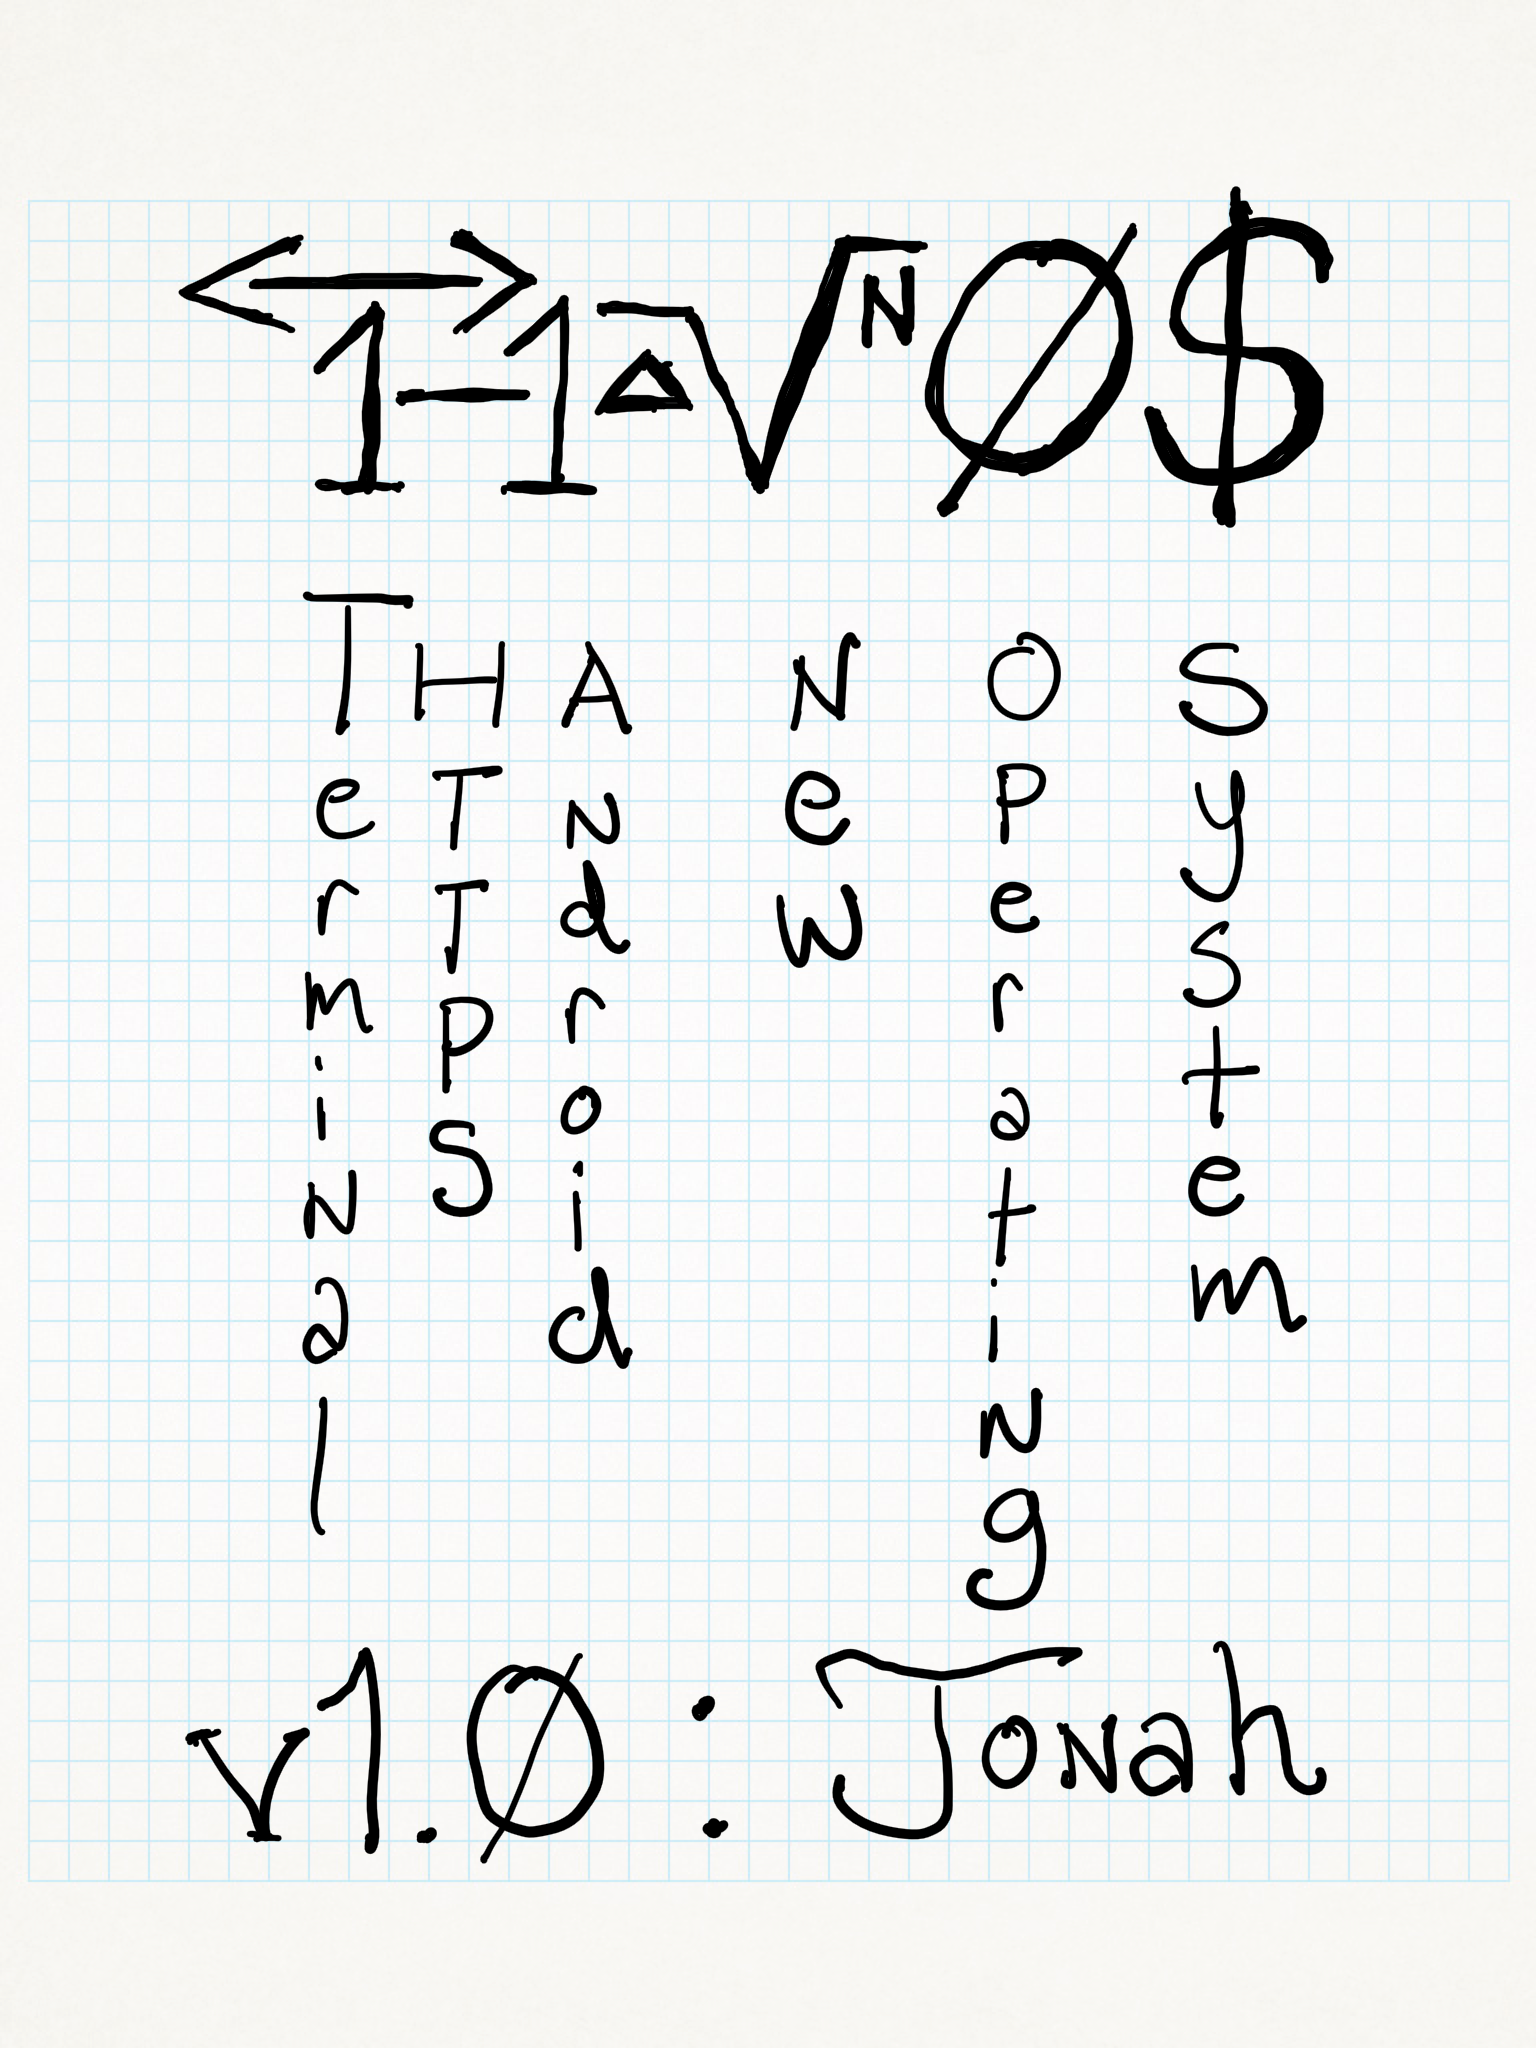 THANOS
Terminal
HTTPS
Android
New
Operating
System
v1.0: Jonah